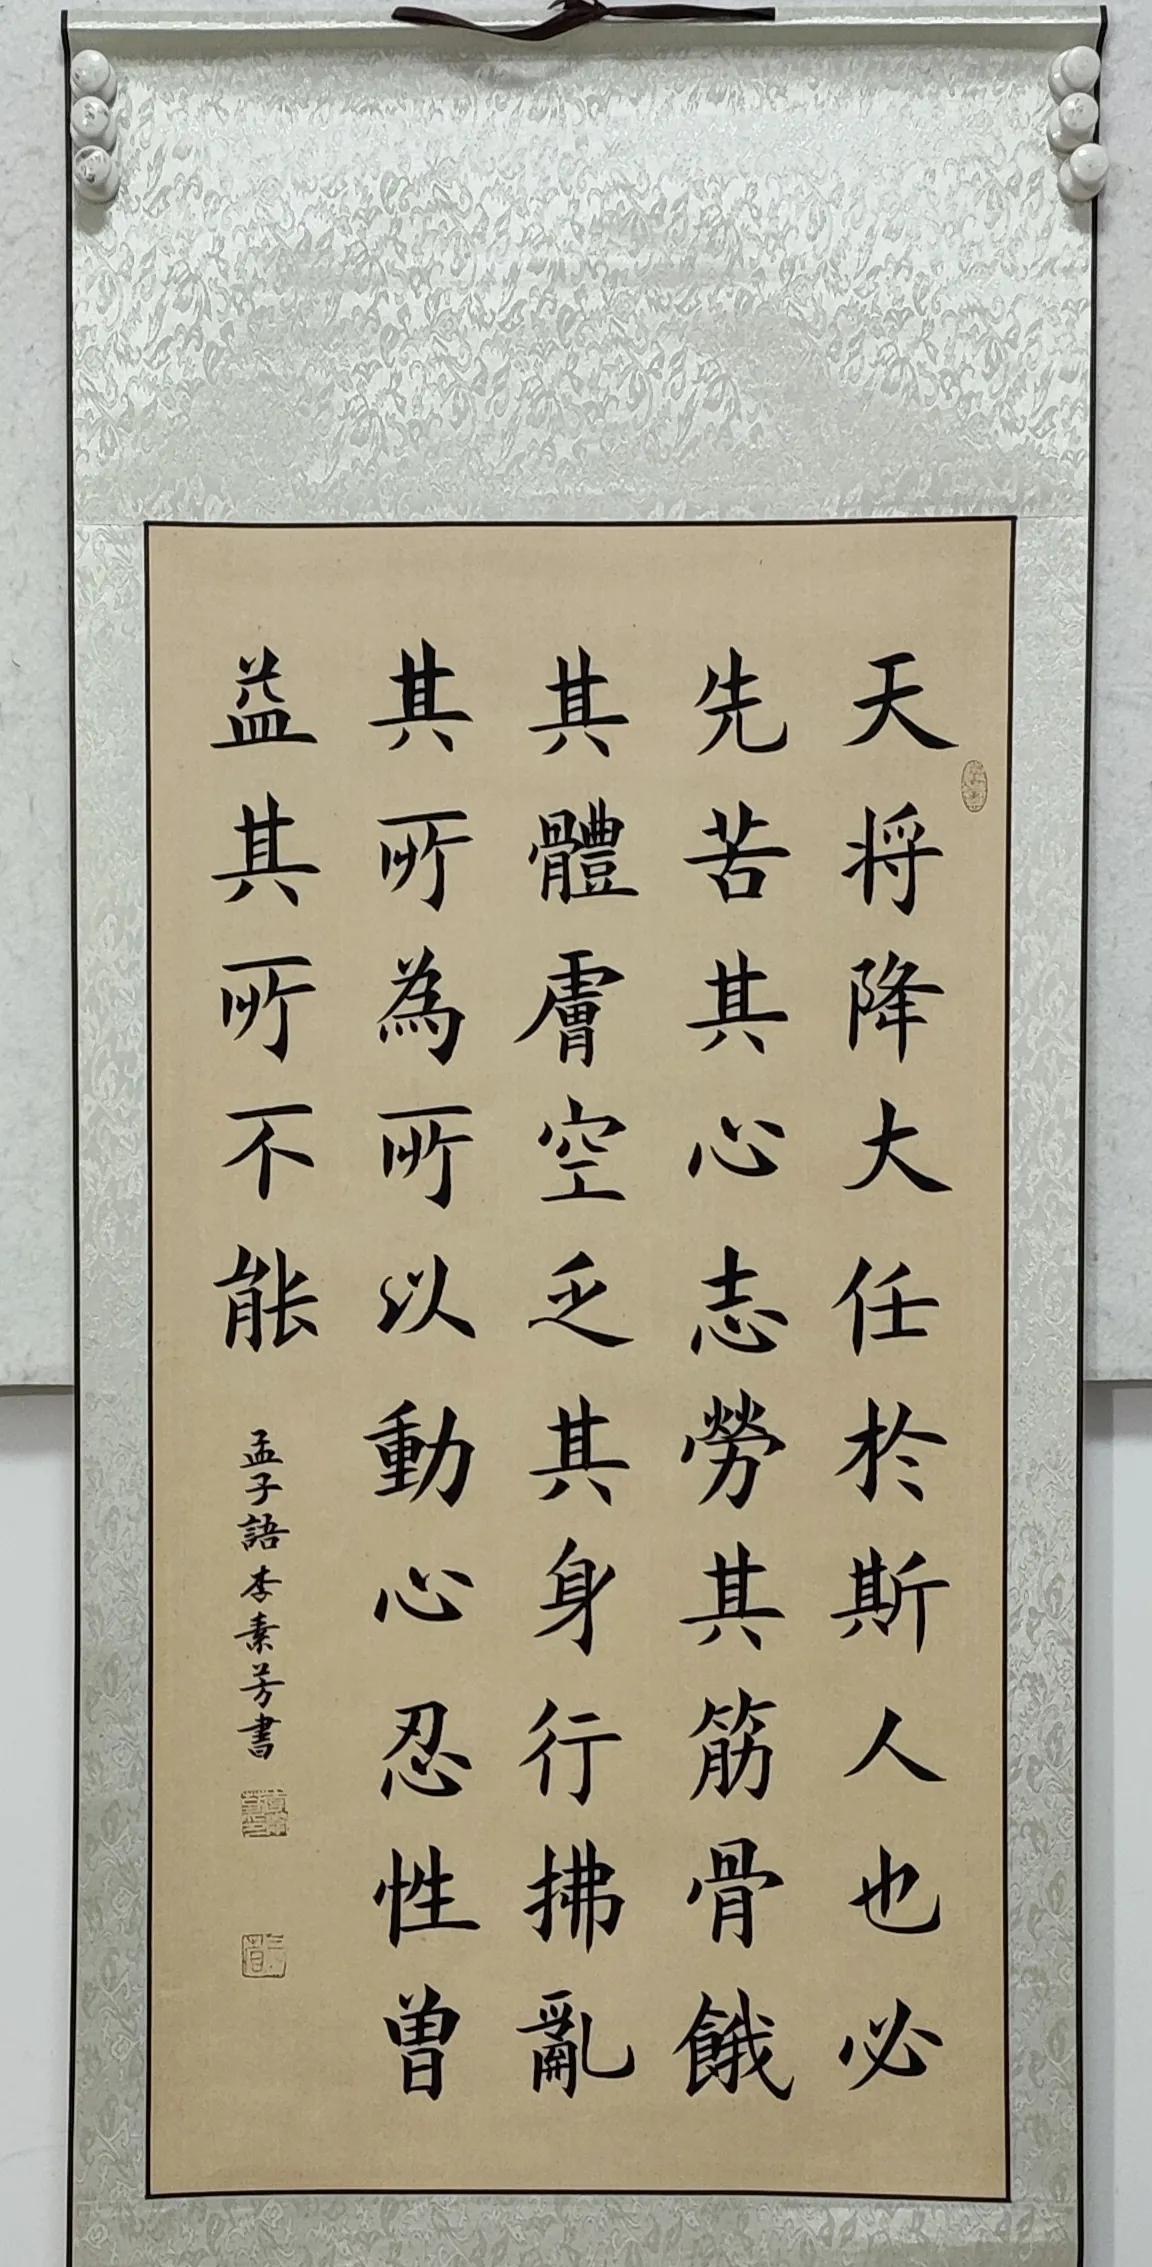 天将降大任於斯人也必
先苦其心志勞其筋骨餓
其體膚空乏其身行拂亂
其所為所以動心忍性曾
益其所不能
孟子語李素芳書